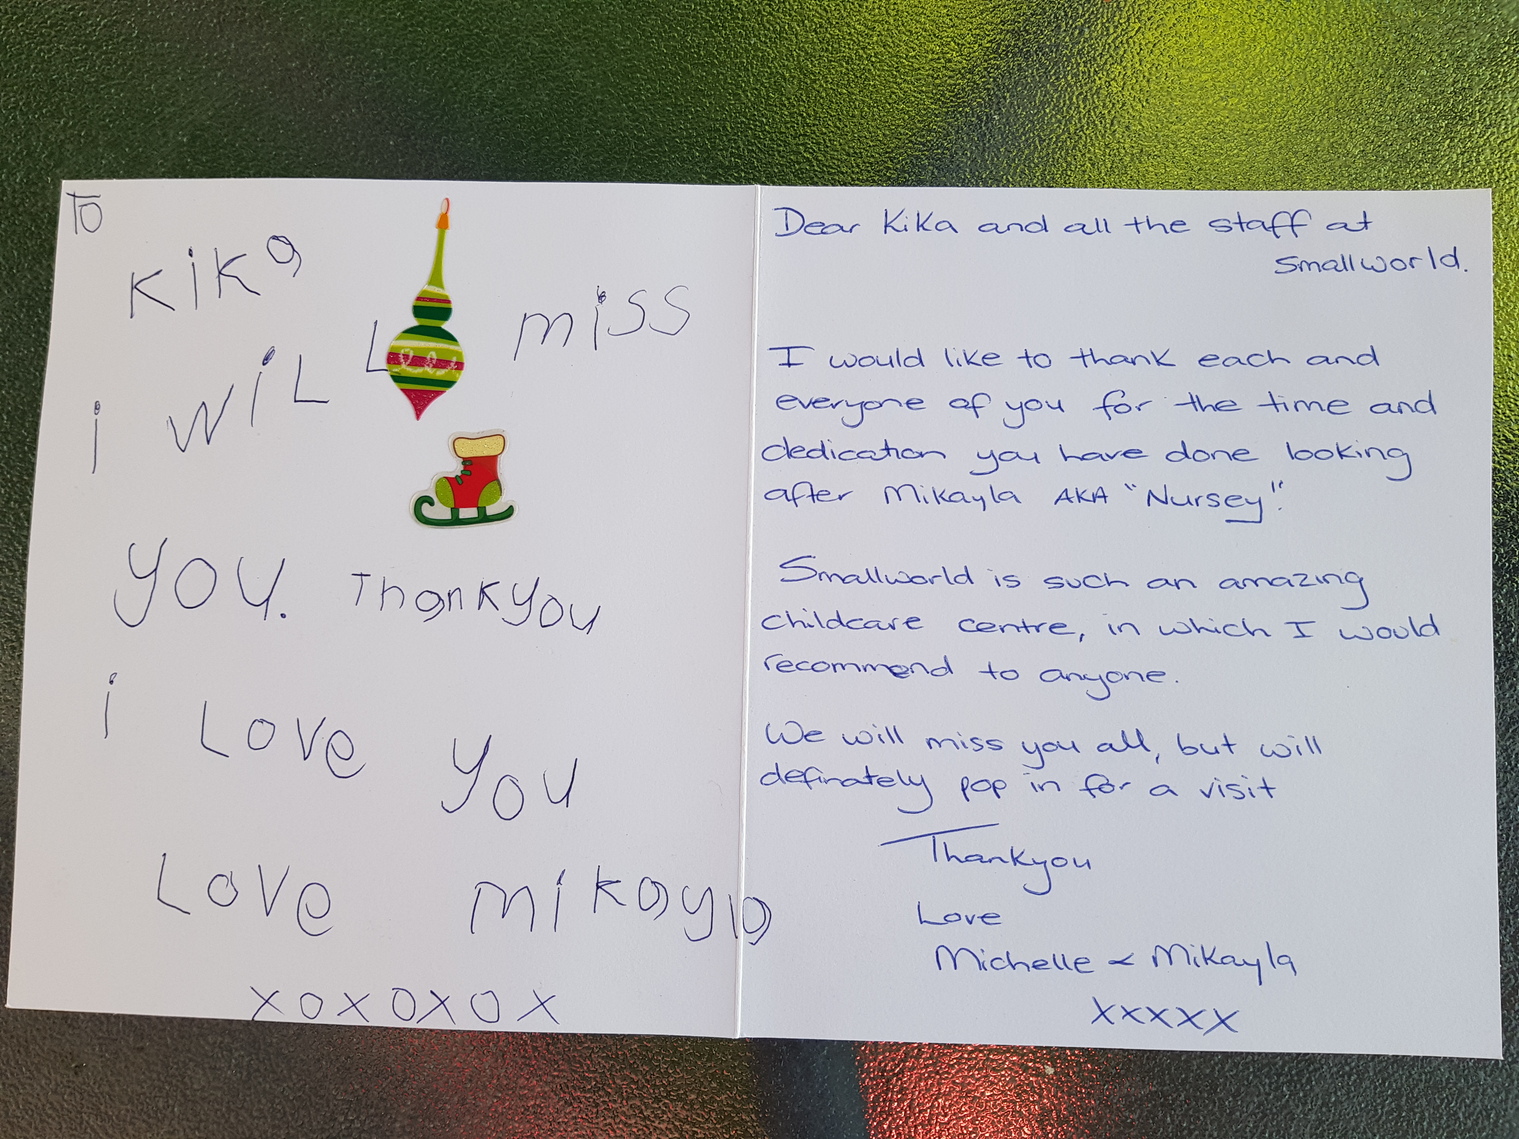 To
Kika
i wiLL miss
you. Thankyou
i Love you
Love mikayla
xoxoxox
Dear Kika and all the staff at
Smallworld.
I would like to thank each and
everyone of you for the time and
dedication you have done looking
after Mikayla AKA "Nursey".
Smallworld is such an amazing
childcare centre, in which I would
recommend to anyone.
We will miss you all, but will
definately pop in for a visit
Thankyou
Love
Michelle & Mikayla
xxxxx